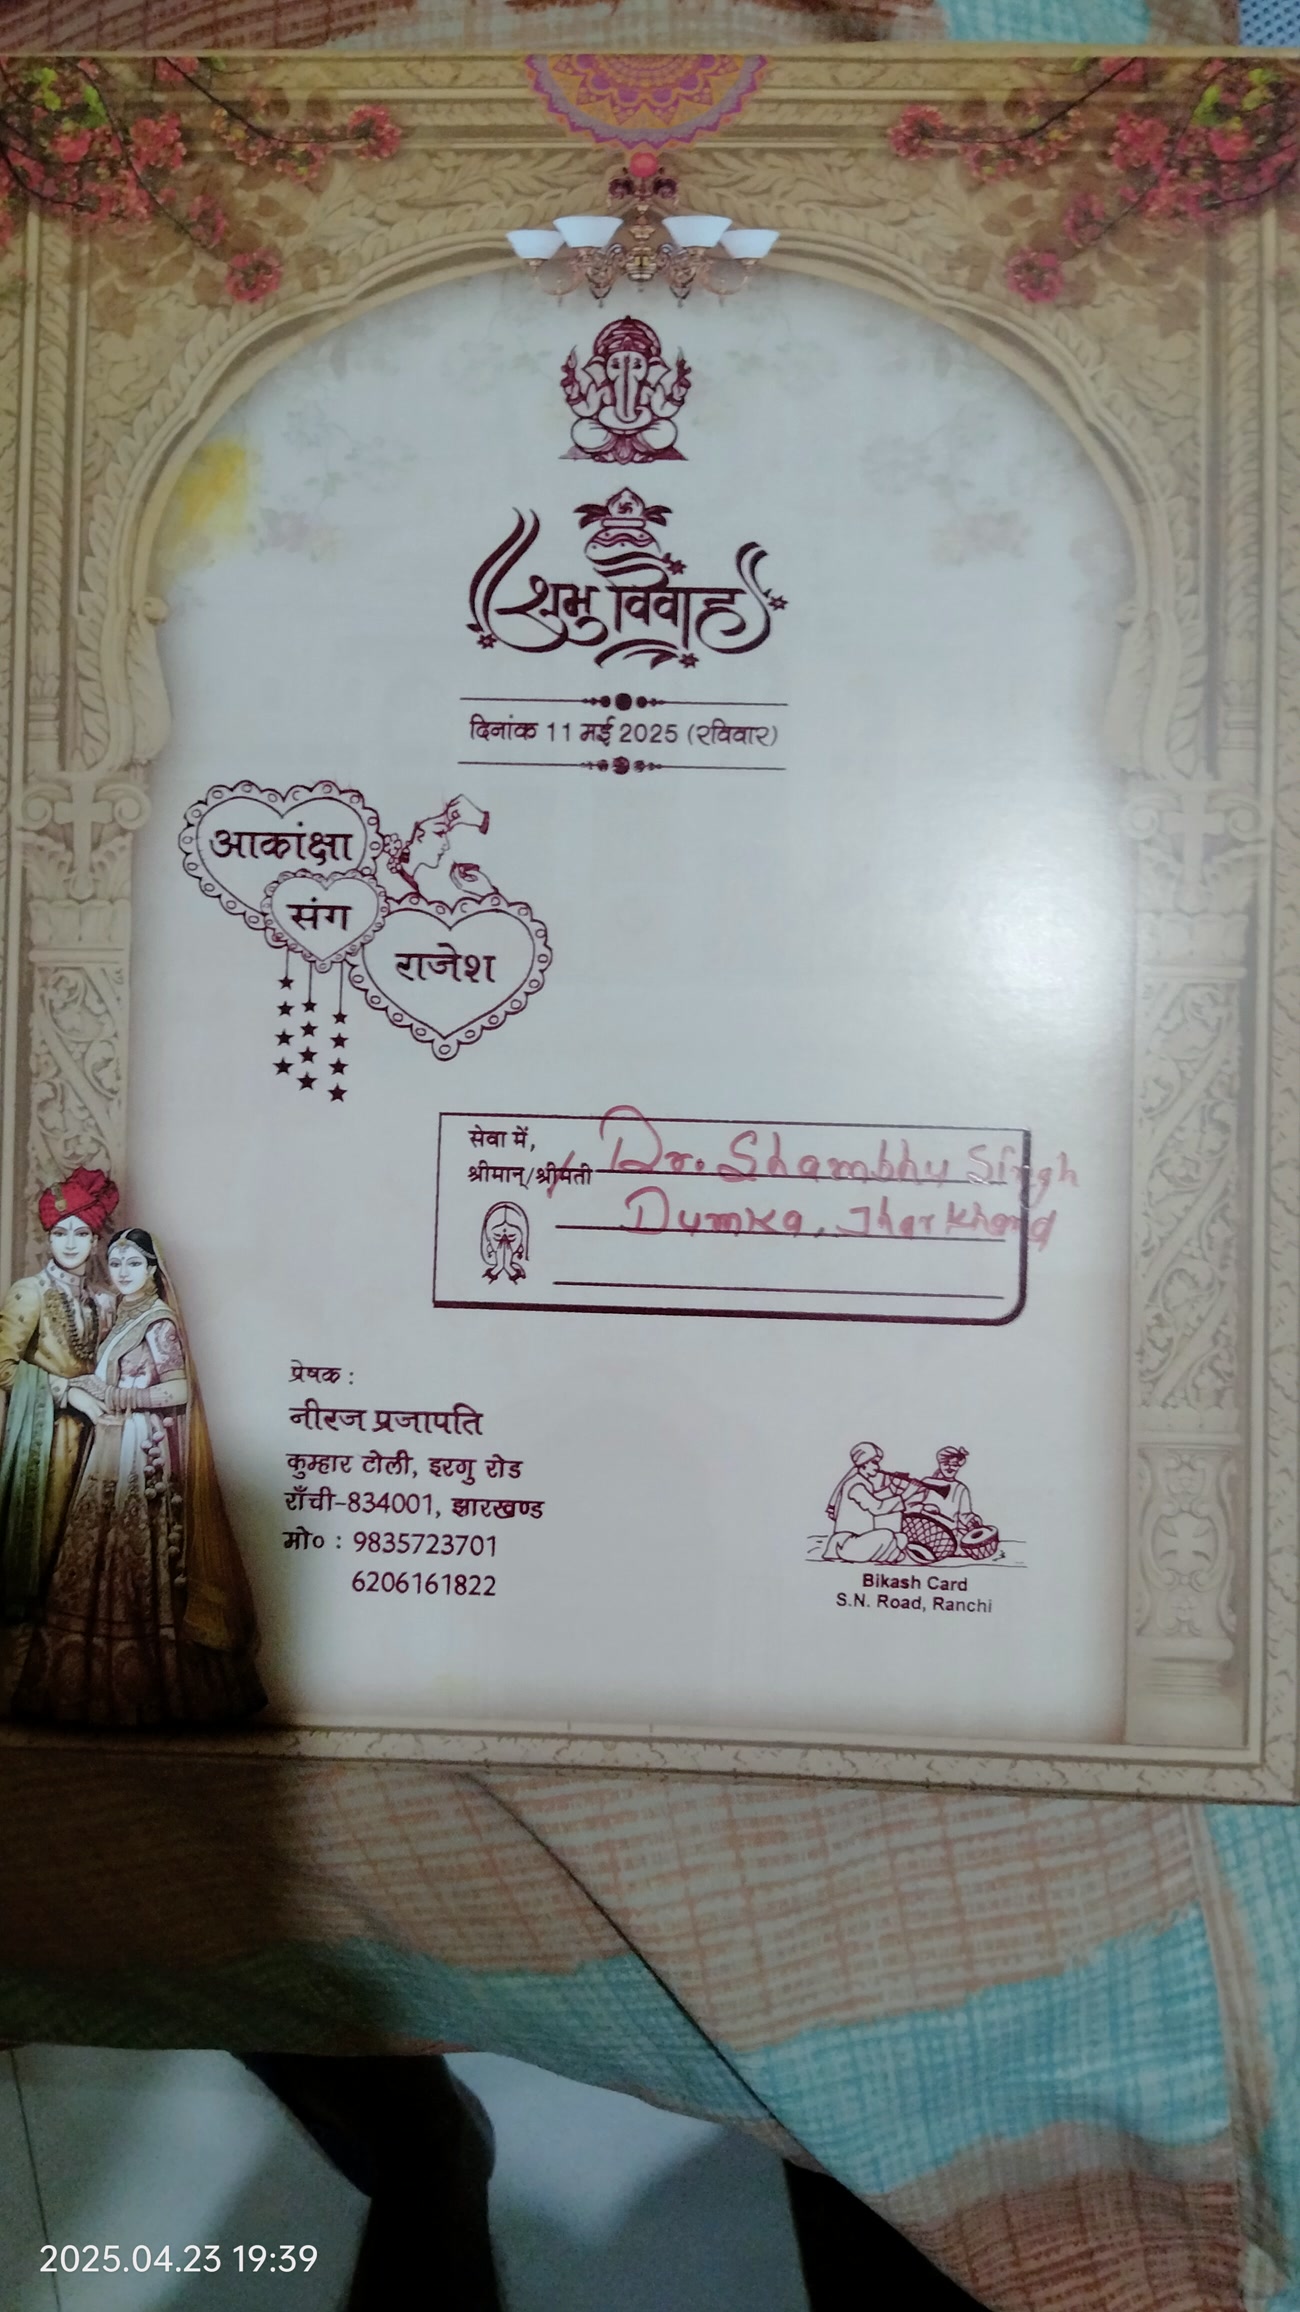 शुभ विवाह
दिनांक 11 मई 2025 (रविवार)
आकांक्षा
संग
राजेश
सेवा में,
श्रीमान्/श्रीमती Dr. Shambhu Singh
Dumka, Jharkhand
प्रेषक :
नीरज प्रजापति
कुम्हार टोली, इरगु रोड
राँची-834001, झारखण्ड
मो० : 9835723701
6206161822
Bikash Card
S.N. Road, Ranchi
2025.04.23 19:39